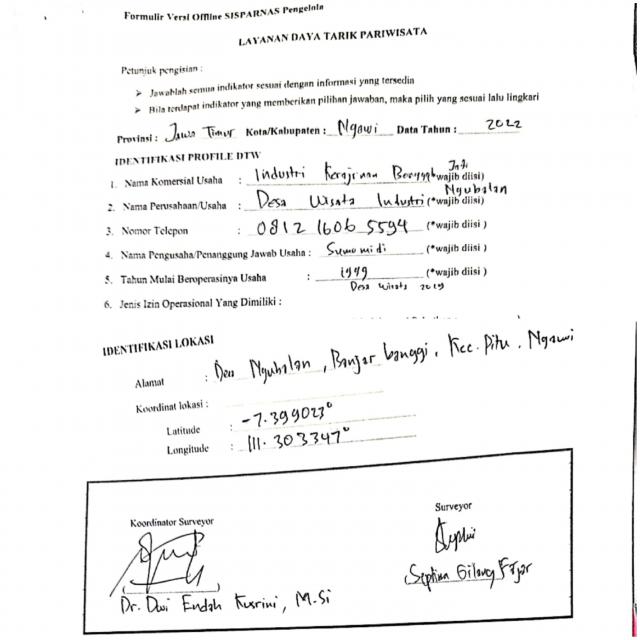 Formulir Versi Offline SISPARNAS Pengelola
LAYANAN DAYA TARIK PARIWISATA
Petunjuk pengisian :
➢ Jawablah semua indikator sesuai dengan informasi yang tersedia
➢ Bila terdapat indikator yang memberikan pilihan jawaban, maka pilih yang sesuai lalu lingkari
Provinsi : Jawa Timur Kota/Kabupaten : Ngawi Data Tahun : 2022
IDENTIFIKASI PROFILE DTW
1. Nama Komersial Usaha : Industri Kerajinan Jati (*wajib diisi)
2. Nama Perusahaan/Usaha : Desa Wisata Industri Ngubalan (*wajib diisi)
3. Nomor Telepon : 0812 1606 5594 (*wajib diisi )
4. Nama Pengusaha/Penanggung Jawab Usaha : Sumomidi (*wajib diisi )
5. Tahun Mulai Beroperasinya Usaha : (*wajib diisi )
Desa Wisata 2019
6. Jenis Izin Operasional Yang Dimiliki :
IDENTIFIKASI LOKASI
Alamat : Desa Ngubalan, Banjar banggi, Kec. Pitu, Ngawi
Koordinat lokasi :
Latitude : -7.399023°
Longitude : 111.303347°
Koordinator Surveyor
Surveyor
Septina Gilang Fajar
Dr. Dwi Endah Kusrini, M.Si